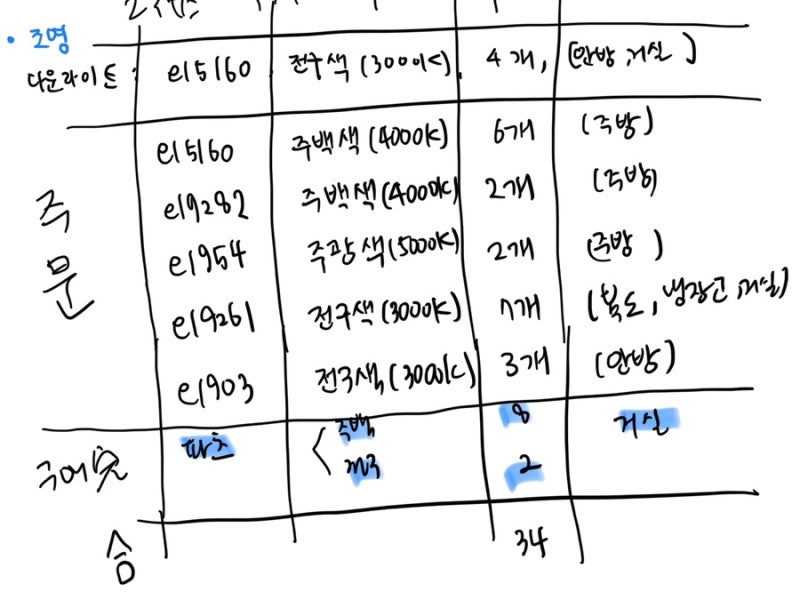 • 조명
다운라이트 : el5160 전구색 (3000K) 4개, (안방, 거실)
주문
el5160 주백색 (4000K) 6개 (주방)
el9282 주백색 (4000K) 2개 (주방)
el954 주광색 (5000K) 2개 (주방)
el9261 전구색 (3000K) 7개 (복도, 냉장고, 거실)
el903 전구색 (3000K) 3개 (안방)
주백 8 거실
전구 2
34